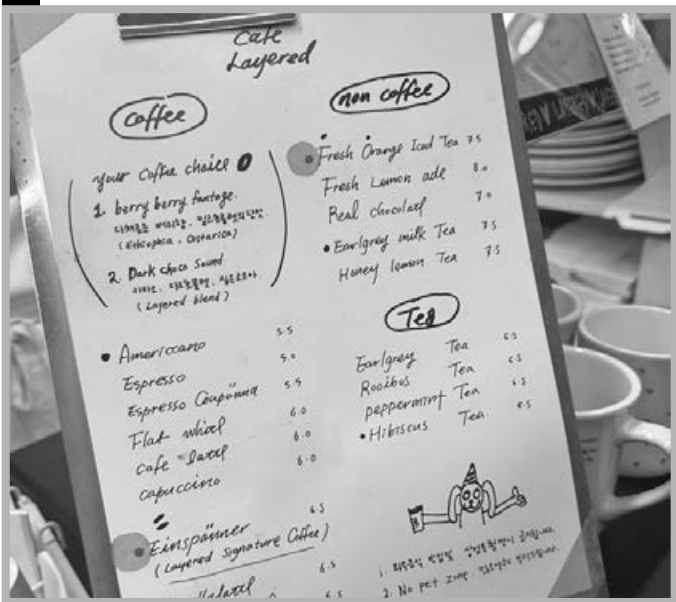 Cafe
Layered
Coffee
your Coffee choice
1. berry berry fantage.
(Ethiopica, Costarica)
2. Dark choco Sound
(Layered blend)
• Americcano 5.5
Espresso 5.0
Espresso 5.5
Flat whitel 6.0
cafe latel 6.0
capuccino 6.0
Einspänner 6.5
(Layered Signature Coffee)
6.5
6.5
non coffee
• Fresh Orange Iced Tea 7.5
Fresh Lemon ade 8.0
Real chocolatel 7.0
• Earlgrey milk Tea 7.5
Honey lemon Tea 7.5
Tea
Earlgrey Tea 6.5
Rooibus Tea 6.5
peppermint Tea 6.5
• Hibiscus Tea. 6.5
1. 외부음식 반입 및
2. No pet zone.